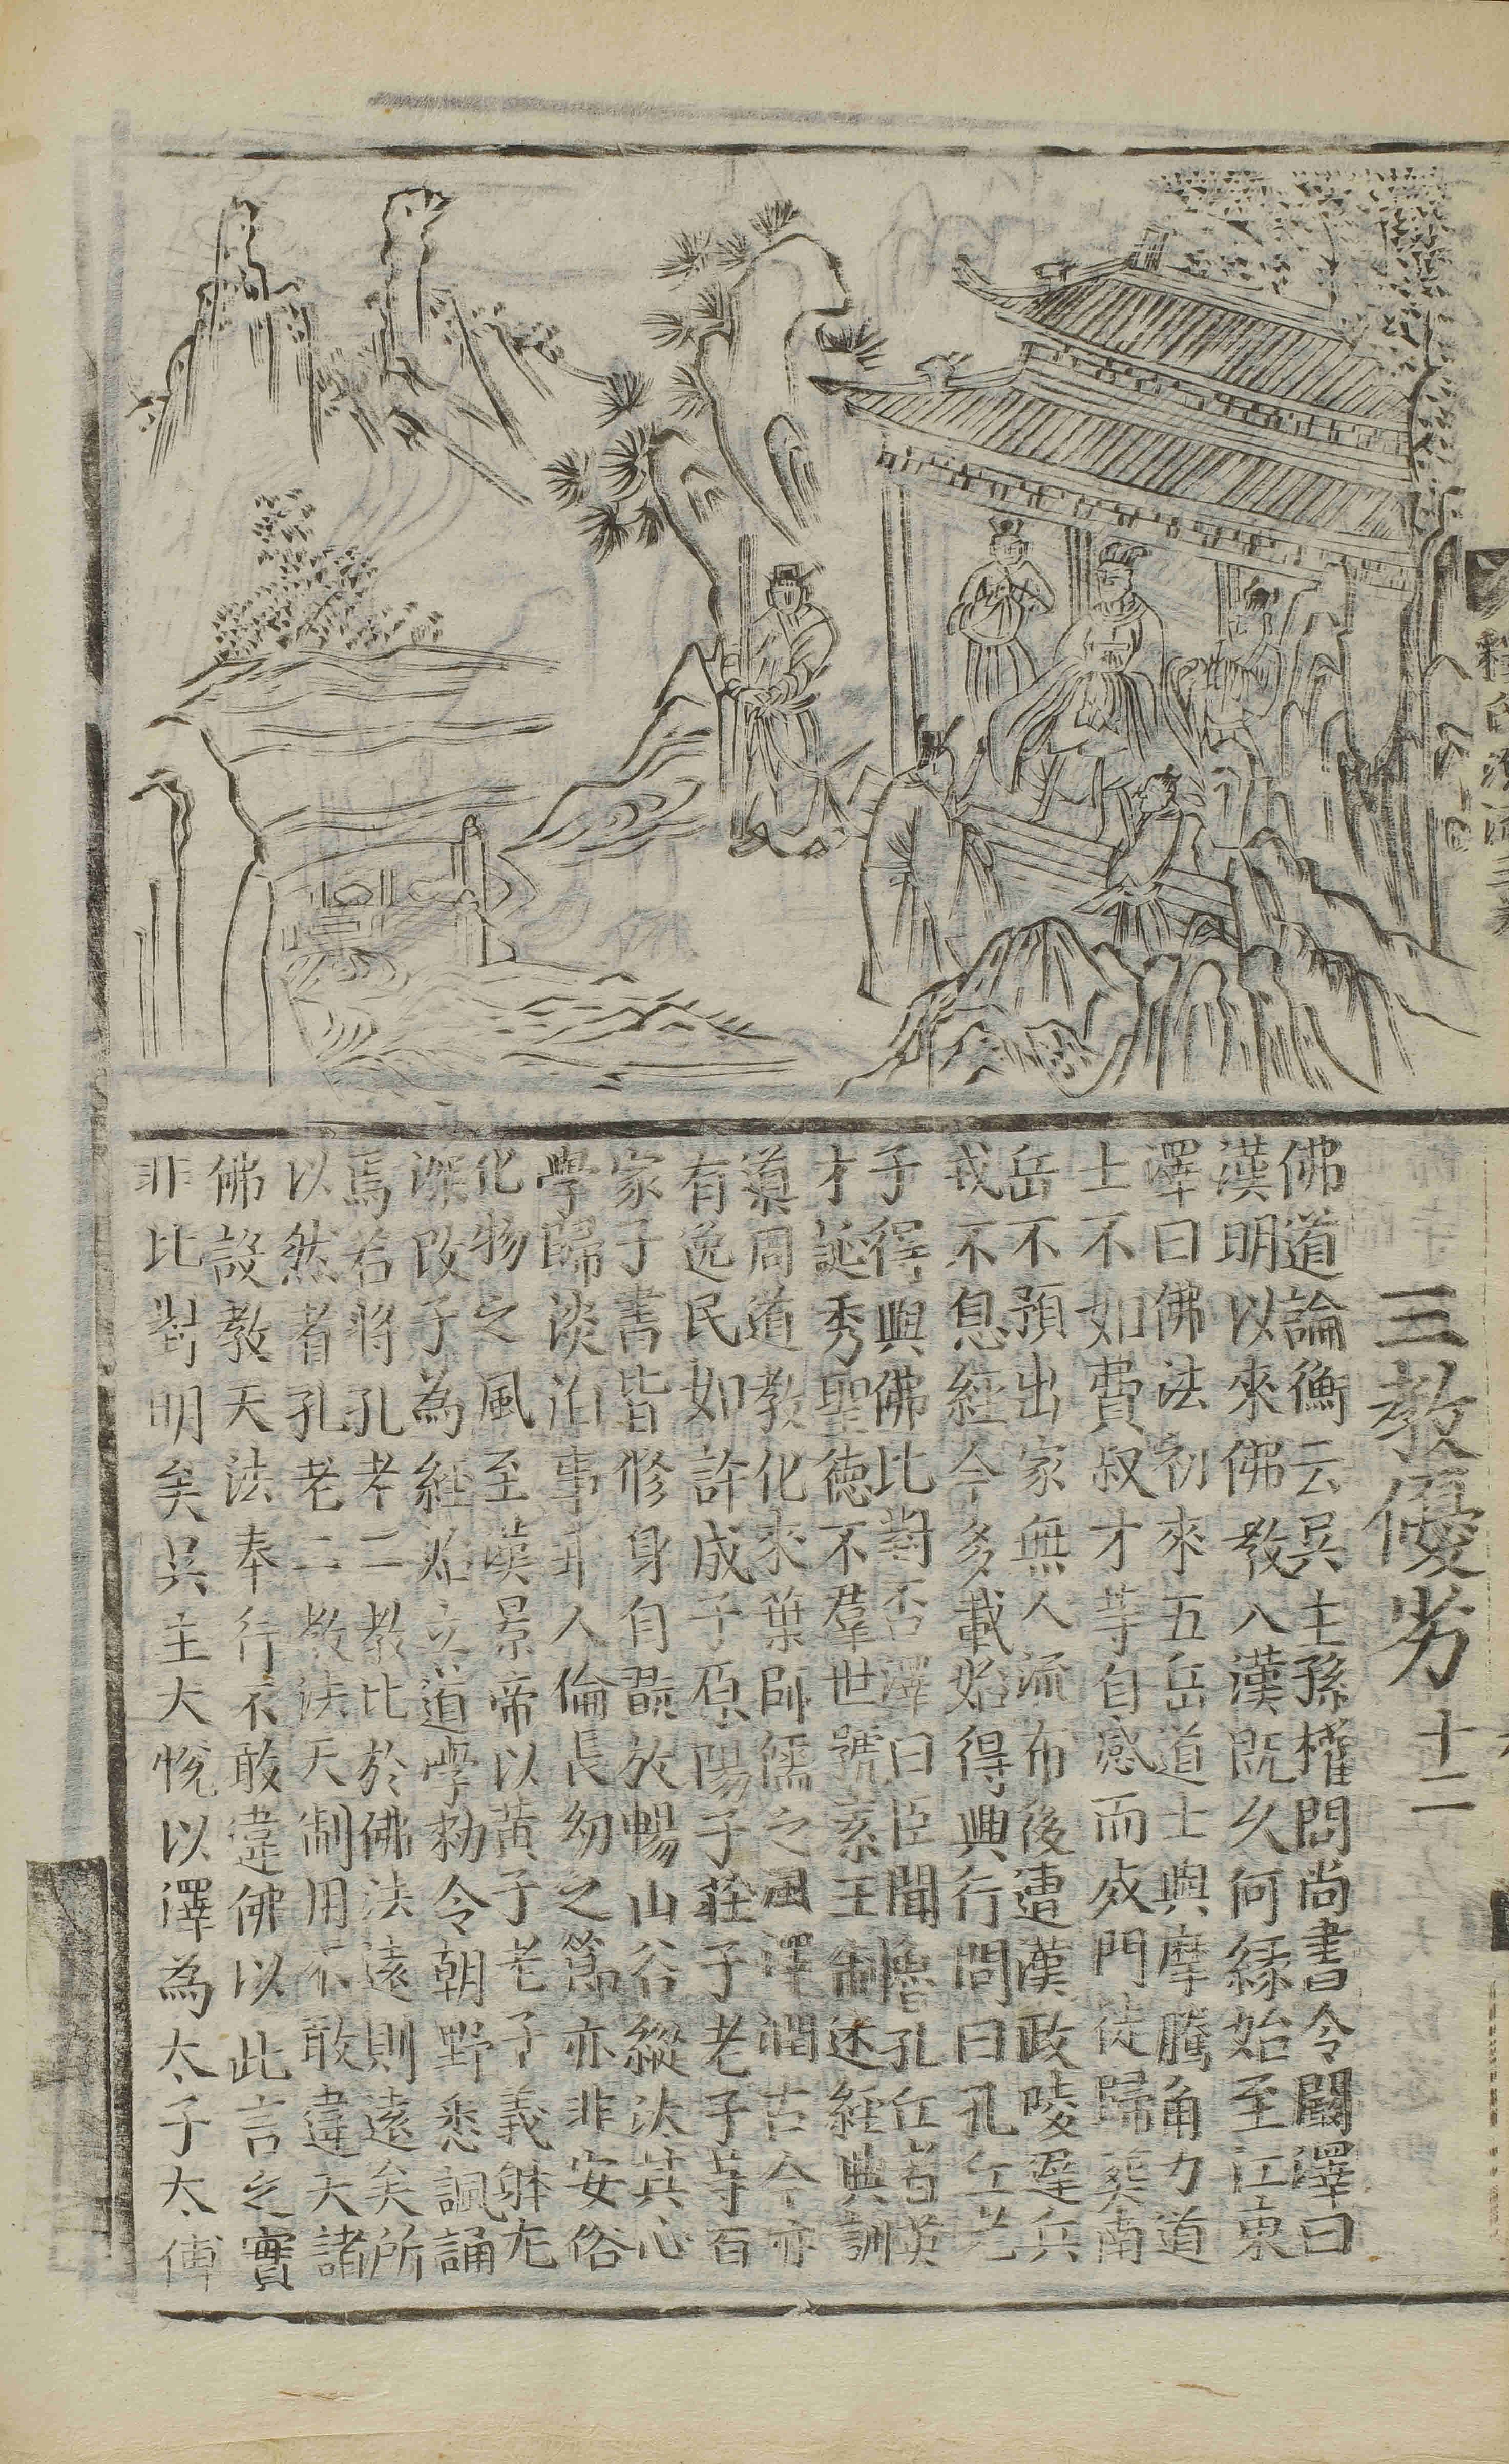 三教優劣 十二
佛道論衡云吳主孫權問尚書令闞澤曰
漢明以來佛教入漢既久何緣始至江東
澤曰佛法初來五岳道士與摩騰角力道
士不如費叔才等自感而死門徒歸葬南
岳不預出家無人流布後遭漢政陵遲兵
戎不息經今多載始得興行問曰孔丘老
子得與佛比對否澤曰臣聞魯孔丘者英
才誕秀聖德不羣世號素王制述經典訓
奬周道教化來葉師儒之風澤潤古今亦
有逸民如許成子原陽子莊子老子等百
家子書皆修身自翫放暢山谷縱汰其心
學歸淡泊事乖人倫長幼之節亦非安俗
化物之風至漢景帝以黃子老子義體尤
深改子為經始立道學勑令朝野悉諷誦
焉若將孔老二教比於佛法遠則遠矣所
以然者孔老二教法天制用不敢違天諸
佛設教天法奉行不敢違佛以此言之實
非比對明矣吳主大悅以澤為太子太傅